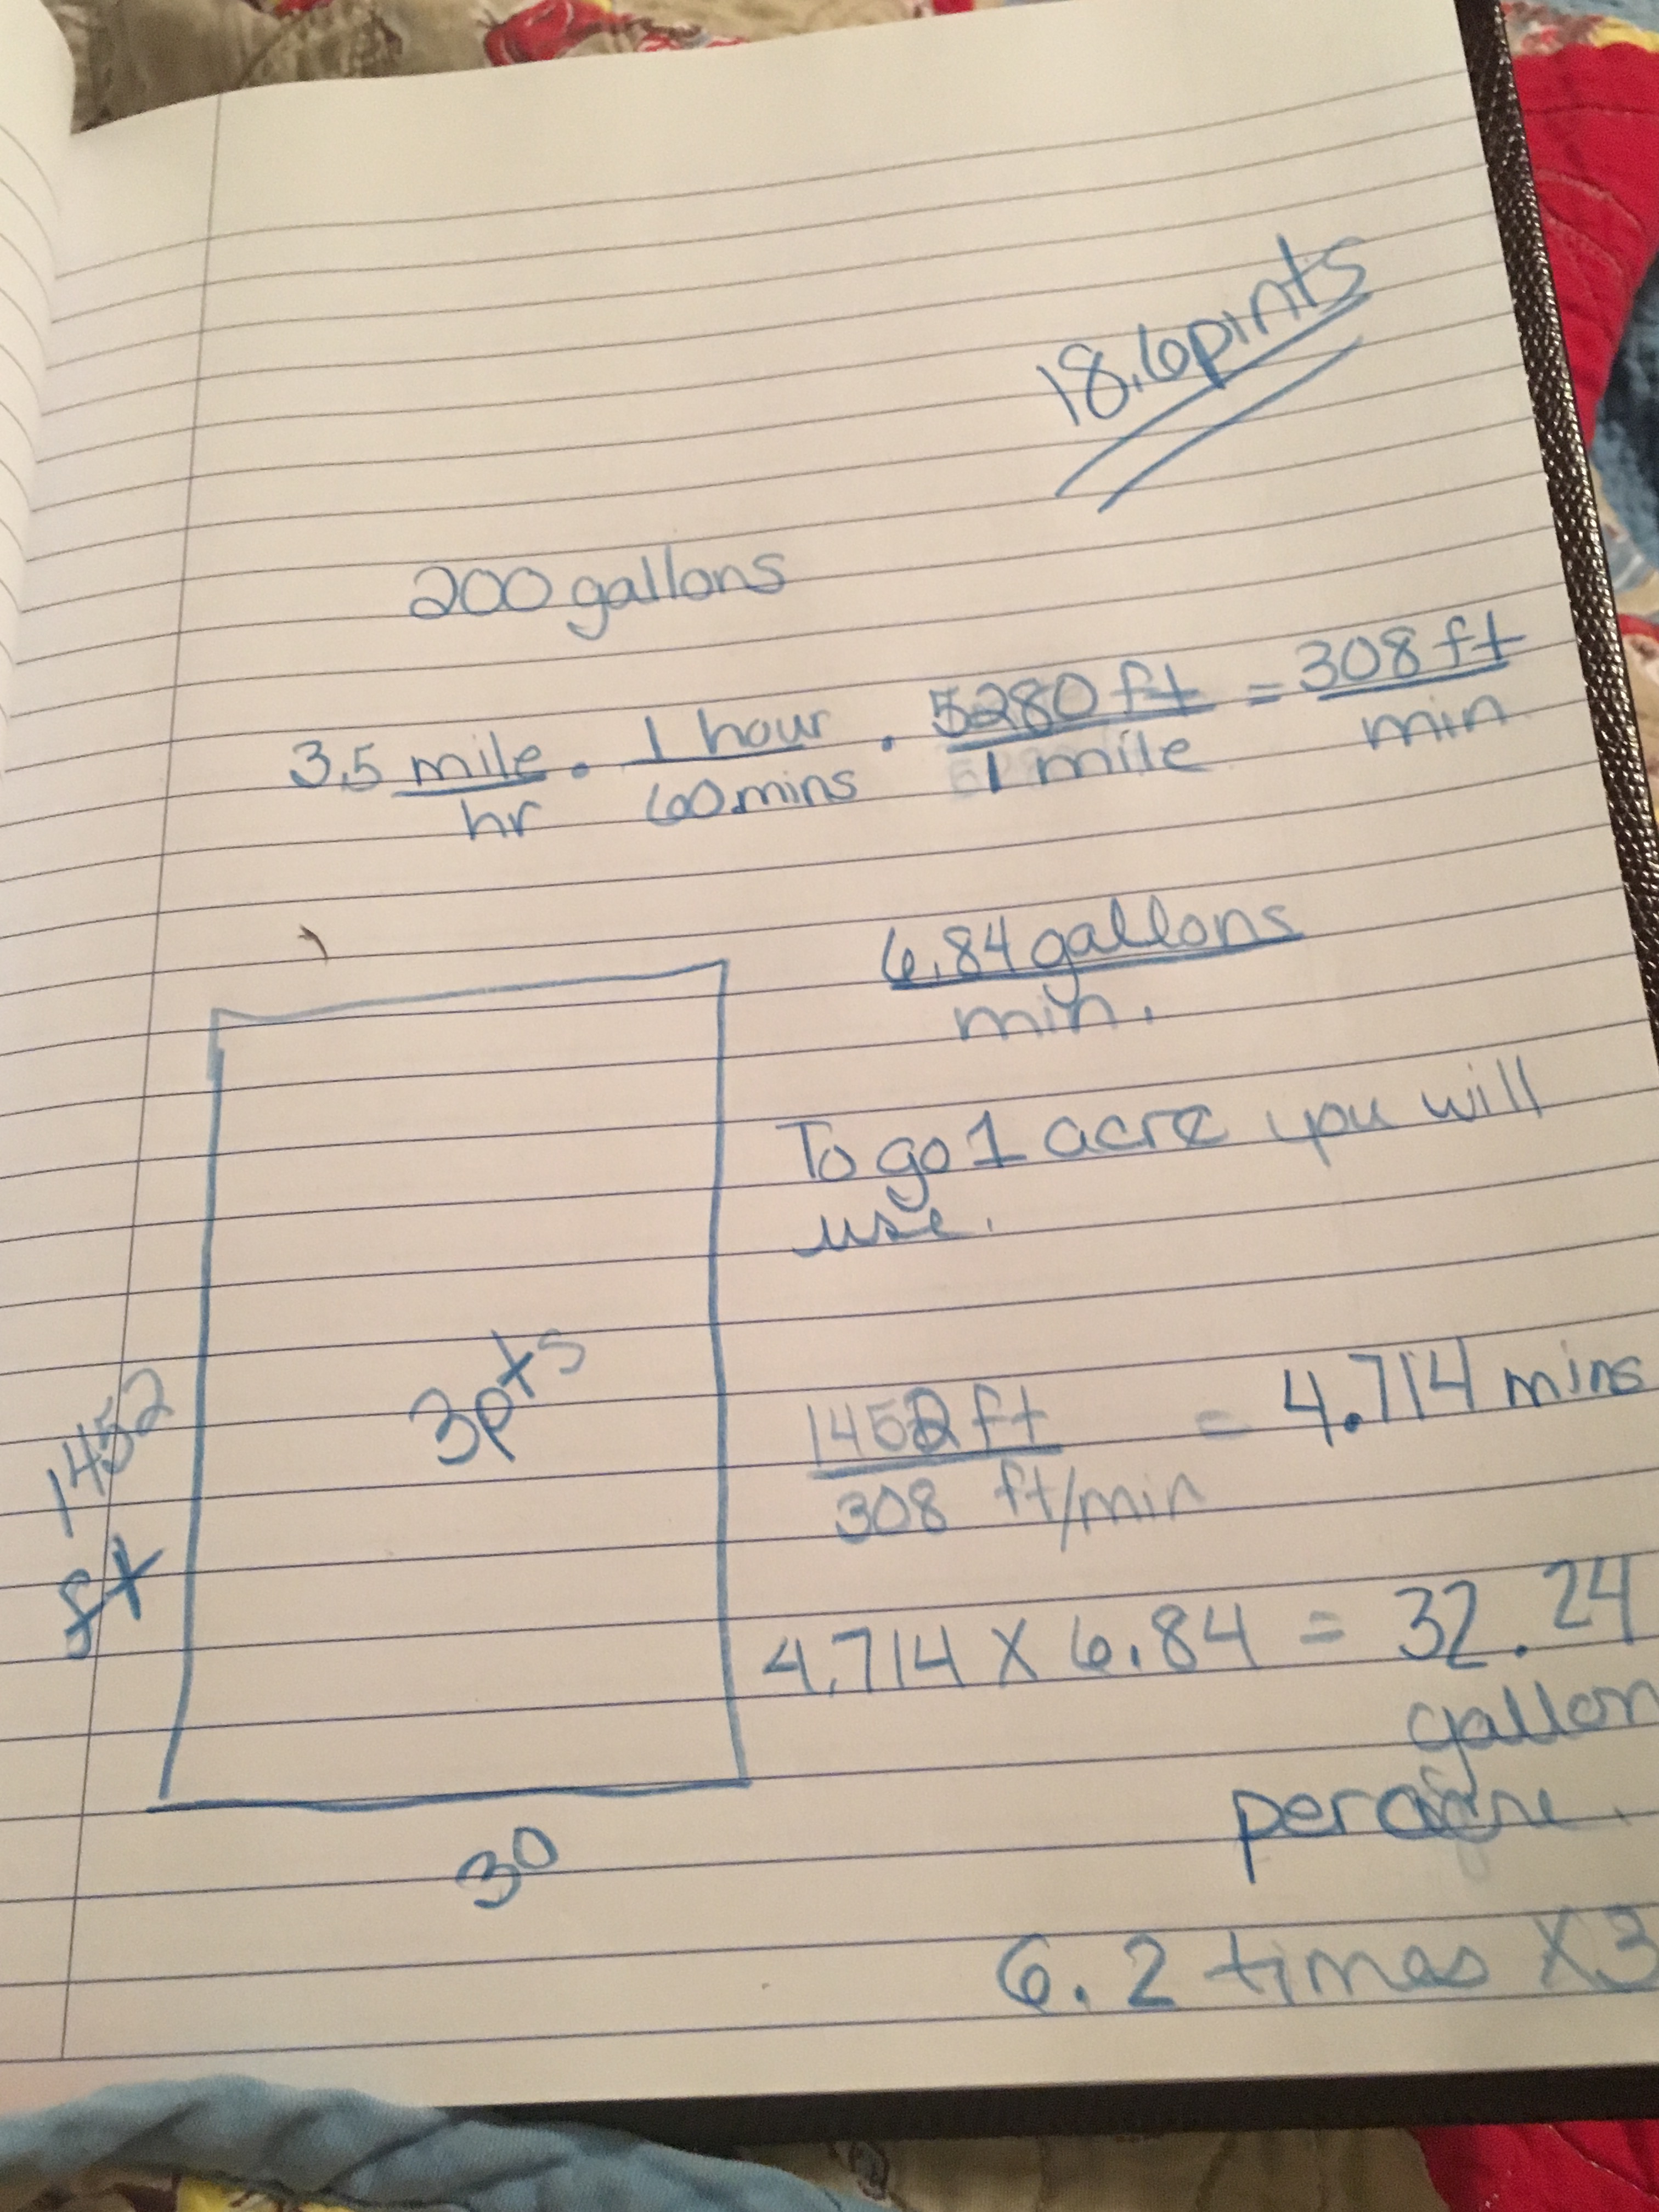 18.6 pints
200 gallons
3.5 mile/hr • 1 hour/60 mins • 5280 ft/1 mile = 308 ft/min
6.84 gallons
min.
To go 1 acre you will
use.
3pts
1452
ft
30
1452 ft / 308 ft/min = 4.714 mins
4.714 X 6.84 = 32.24
gallon
per acre.
6.2 times X3